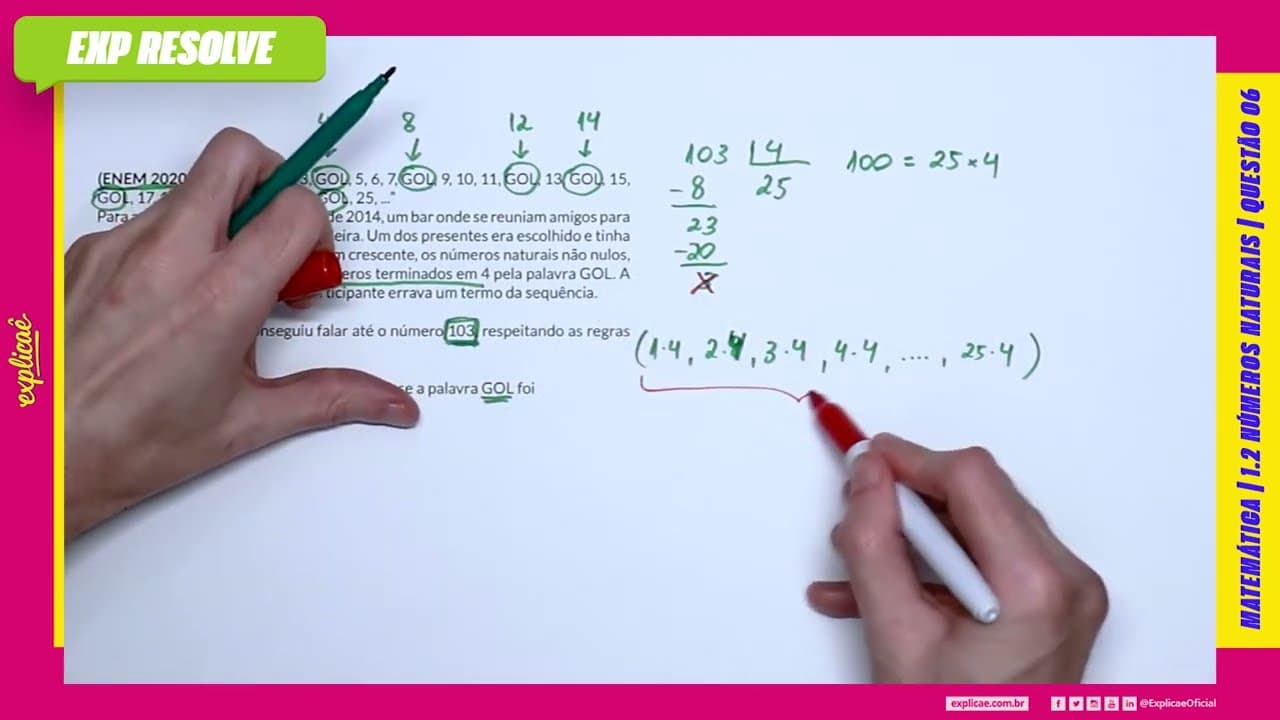 EXP RESOLVE
4 8 12 14
(ENEM 2020 3, GOL, 5, 6, 7, GOL, 9, 10, 11, GOL, 13, GOL, 15,
GOL, 17, GOL, 25, ..."
Para de 2014, um bar onde se reuniam amigos para
eira. Um dos presentes era escolhido e tinha
m crescente, os números naturais não nulos,
eros terminados em 4 pela palavra GOL. A
ticipante errava um termo da sequência.
nseguiu falar até o número 103, respeitando as regras
se a palavra GOL foi
103 4
- 8 25
23
-20
100 = 25 × 4
(1·4, 2·4, 3·4, 4·4, ...., 25·4)
explicaê
MATEMÁTICA | 1.2 NÚMEROS NATURAIS | QUESTÃO 06
explicae.com.br @ExplicaeOficial